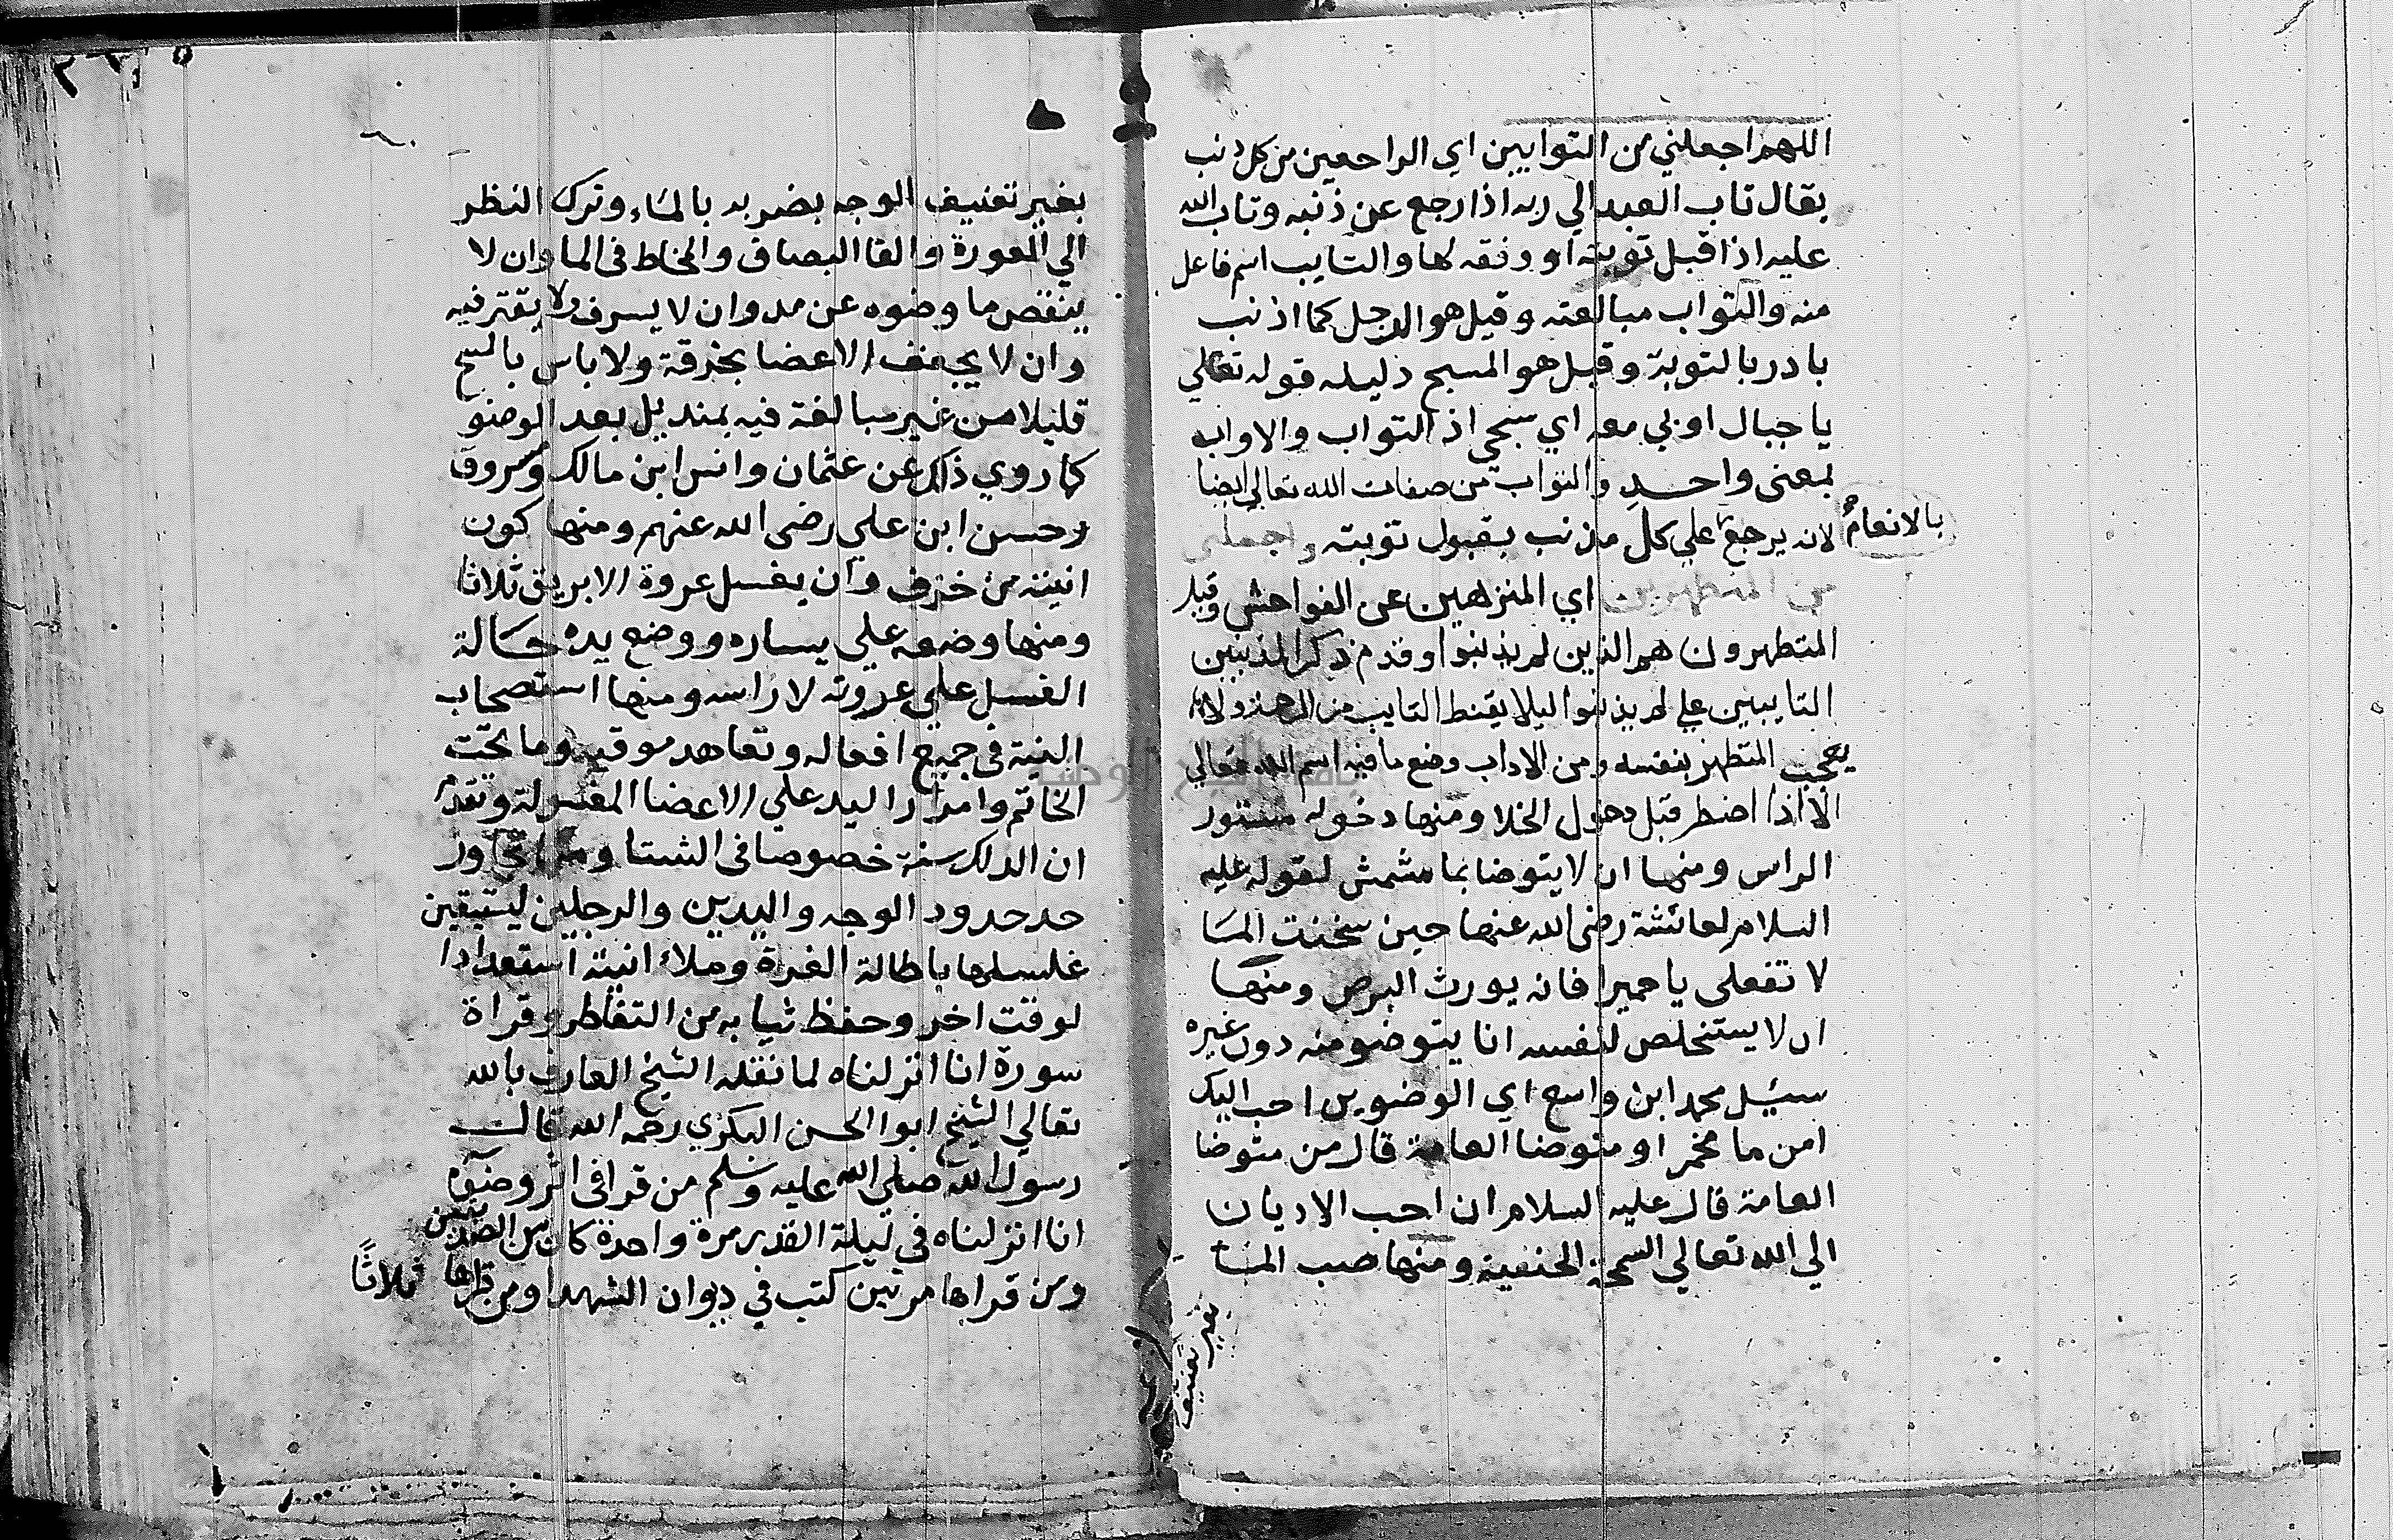 اللهم اجعلني من التوابين اي الراجعين من كل ذنب
يقال تاب العبد الي ربه اذا رجع عن ذنبه وتاب الله
عليه اذا قبل توبته او وفقه لها والتايب اسم فاعل
منه والتواب مبالغته وقيل هو الرجل كما اذنب
بادر بالتوبة وقيل هو المسبح دليله قوله تعالي
يا جبال اوبي معه اي سبحي اذ التواب والاواب
بمعنى واحد والتواب من صفات الله تعالي ايضا
لانه يرجع علي كل مذنب بقبول توبته واجعلني
بالانعام
من المتطهرين اي المنزهين عن الفواحش وقيل
المتطهرون هم الذين لم يذنبوا وقدم ذكر المذنبين
التايبين علي لم يذنبوا ليلا يقنط التايب من الرحمة ولا
يعجب المتطهر بنفسه ومن الاداب وضع ما فيه اسم الله تعالي
الا اذا اضطر قبل دخول الخلا ومنها دخوله مستور
الراس ومنها ان لا يتوضا بما مشمش لقوله عليه
السلام لعائشة رضى الله عنها حين سخنت الما
لا تفعلى يا حميرا فانه يورث البرص ومنها
ان لا يستخلص لنفسه انا يتوضو منه دون غيره
سيل محمد ابن واسع اي الوضوين احب اليك
امن ما مخمر او متوضا العامة قال من متوضا
العامة قال عليه السلام ان احب الاديان
الي الله تعالي السمحة الحنفية ومنها صب الما
بغير تعنيف
بغير تعنيف الوجه بضربه بالماء وترك النظر
الي العورة والقا البصاق والمخاط في الما وان لا
ينقص ما وضوه عن مد وان لا يسرف ولا يقتر فيه
وان لا يجفف الاعضا بخرقة ولا باس بالمسح
قليلا من غير مبالغة فيه بمنديل بعد الوضو
كما روي ذلك عن عثمان وانس ابن مالك ومسروق
وحسن ابن علي رضى الله عنهم ومنها كون
انيته من خزف وان يغسل عروة الابريق ثلاثا
ومنها وضعه علي يساره ووضع يده حالة
الغسل علي عروته لا راسه ومنها استصحاب
النية في جميع افعاله وتعاهد موقيه وما تحت
الخاتم وامرار اليد علي الاعضا المغسولة وتقدم
ان الدلك سنة خصوصا في الشتا ومنها تجاوز
حد حدود الوجه واليدين والرجلين ليتيقن
غلسلها باطالة الغرة وملاء انيته استعدادا
لوقت اخر وحفظ ثيابه من التقاطر وقراة
سورة انا انزلناه لما نقله الشيخ العارف بالله
تعالي الشيخ ابوا الحسن البكري رحمه الله قال
رسول الله صلي الله عليه وسلم من قرا في اثر وضوئه
انا انزلناه في ليلة القدر مرة واحدة كان من الصديقين
ومن قراها مرتين كتب في ديوان الشهدا ومن قراها ثلاثا